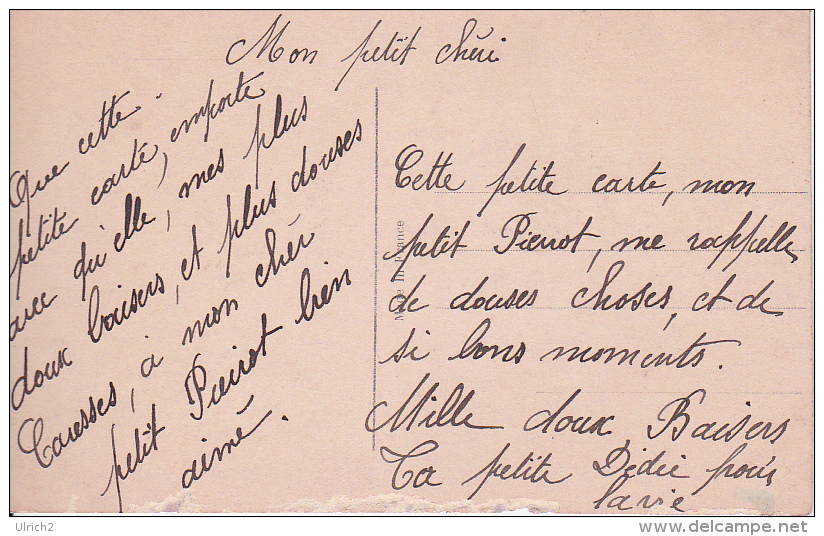 Mon petit chéri
Que cette
petite carte, emporte
avec qu'elle, mes plus
doux baisers, et plus douses
Caresses, à mon chér
petit Pieirot bien
aimé.
Cette petite carte, mon
petit Pierrot, me rappelle
de douses choses, et de
si bons moments.
Mille doux Baisers
Ta petite Dédée pour
la vie
Made in France
Ulrich2
delcampe.net